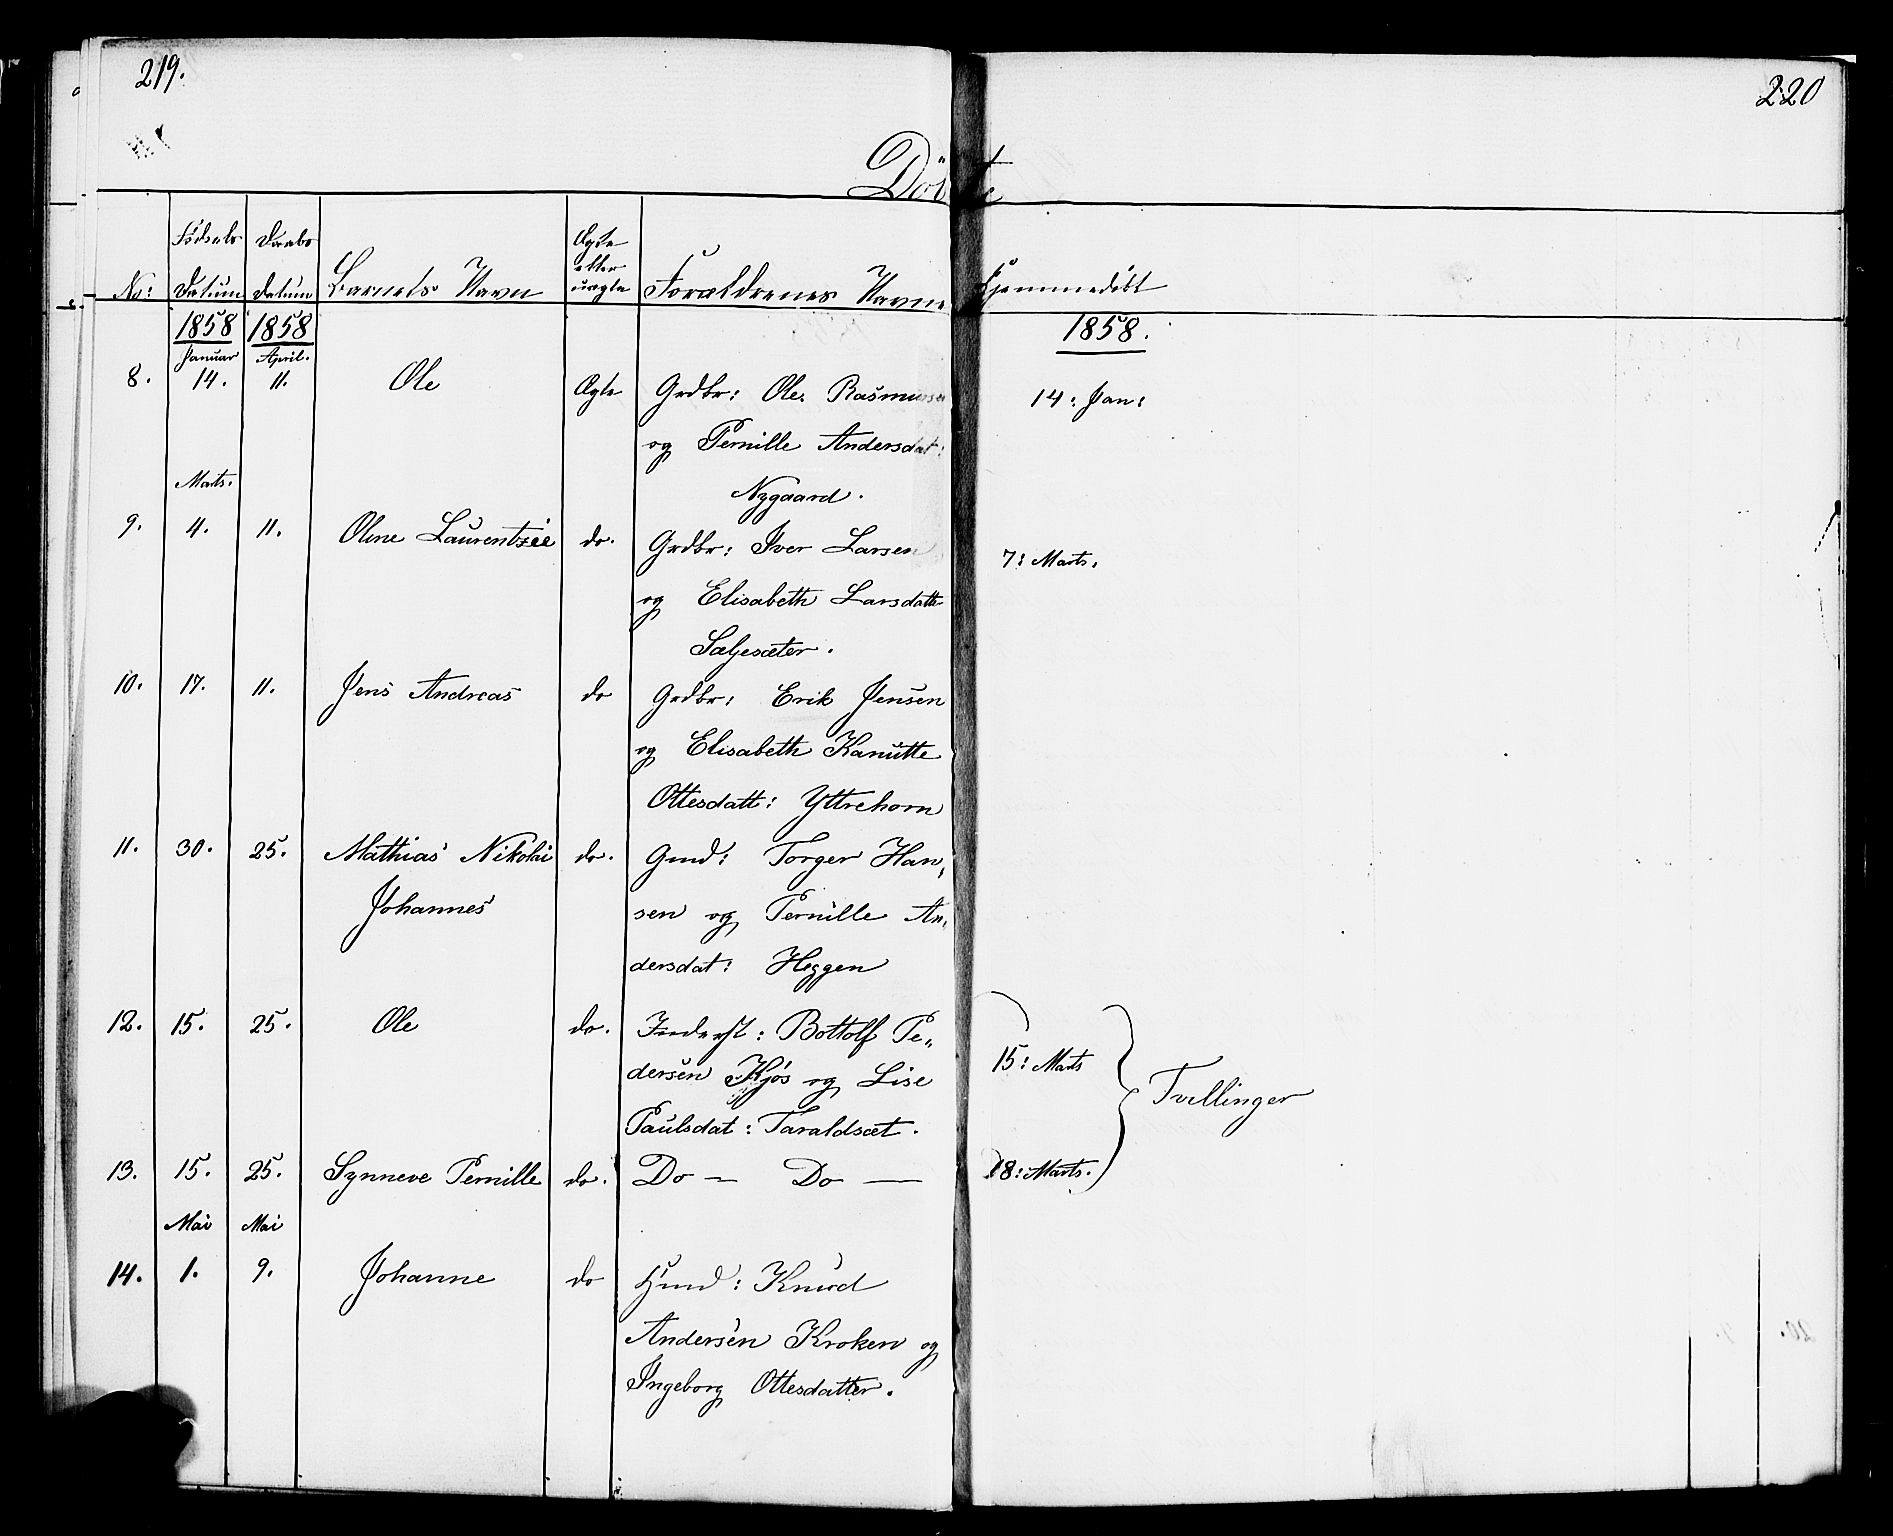 219.
220
Döbte
No: Fødsels Datum Daabs Datum Barnets Navn Ægte eller uægte Forældrenes Navne Hjemmedöbt
1858 1858 1858.
Januar April.
8. 14. 11. Ole Ægte Grdbr: Ole Rasmussen 14: Jan:
og Pernille Andersdat:
Nygaard.
Marts.
9. 4. 11. Oline Laurentzèe do. Grdbr: Iver Larsen 7: Marts.
og Elisabeth Larsdatter
Sæljesæter.
10. 17. 11. Jens Andreas do Grdbr: Erik Jensen
og Elisabeth Kanutte
Ottesdatt: Yttrehorn
11. 30. 25. Mathias Nikolai do. Gmd: Torger Han„
Johannes sen og Pernille An„
dersdat: Heggen
12. 15. 25. Ole do. Inderst: Bottolf Pe„
dersen Kjøs og Lise 15: Marts
Tvillinger
Paulsdat: Taraldsæt.
13. 15. 25. Synneve Pernille do. Do — Do — 18: Marts.
Mai Mai
14. 1. 9. Johanne do Hmd: Knud
Andersen Kroken og
Ingeborg Ottesdatter.